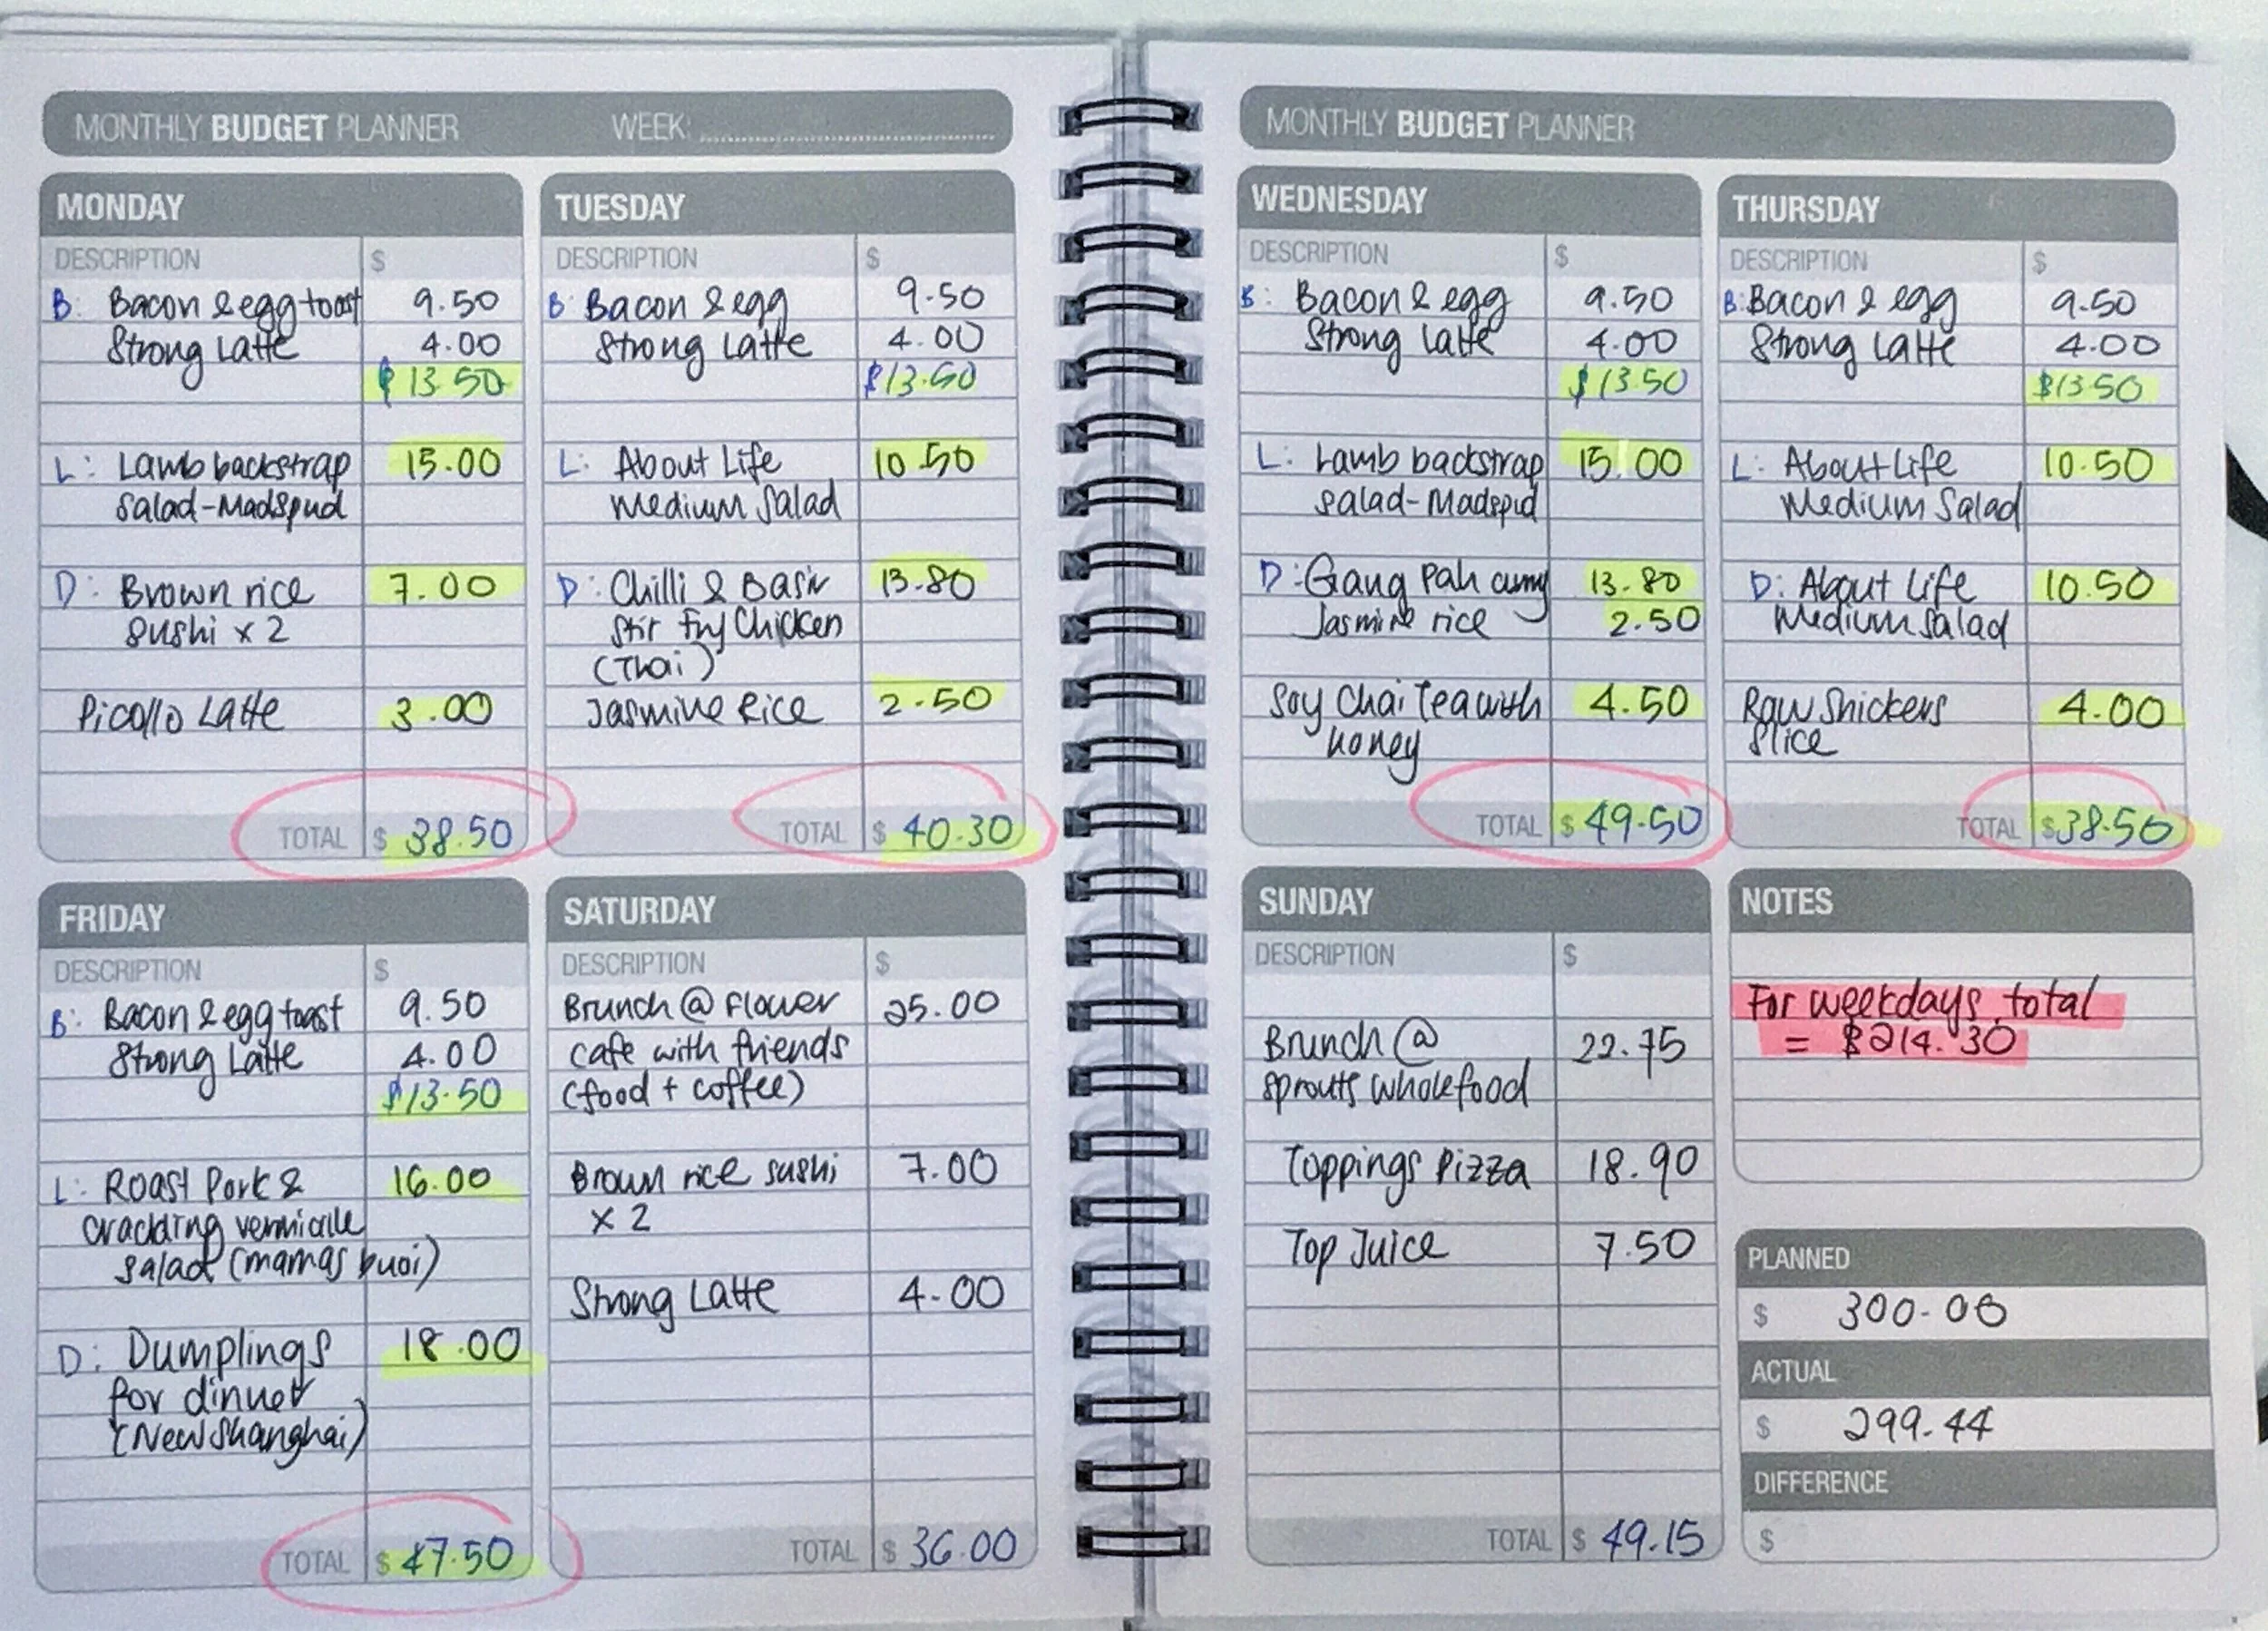 MONTHLY BUDGET PLANNER WEEK:
MONDAY
DESCRIPTION $
B: Bacon & egg toast 9.50
Strong Latte 4.00
$13.50
L: Lamb backstrap 15.00
Salad-Madspud
D: Brown rice 7.00
Sushi x 2
Picollo Latte 3.00
TOTAL $ 38.50
TUESDAY
DESCRIPTION $
B: Bacon & egg 9.50
Strong Latte 4.00
$13.50
L: About Life 10.50
Medium Salad
D: Chilli & Basil 13.80
Stir Fry Chicken
(Thai)
Jasmine Rice 2.50
TOTAL $ 40.30
FRIDAY
DESCRIPTION $
B: Bacon & egg toast 9.50
Strong Latte 4.00
$13.50
L: Roast Pork & 16.00
crackling vermicille
salad (mamas buoi)
D: Dumplings 18.00
for dinner
(New Shanghai)
TOTAL $ 47.50
SATURDAY
DESCRIPTION $
Brunch @ Flower 25.00
cafe with friends
(food + coffee)
Brown rice sushi 7.00
x 2
Strong Latte 4.00
TOTAL $ 36.00
MONTHLY BUDGET PLANNER
WEDNESDAY
DESCRIPTION $
B: Bacon & egg 9.50
Strong Latte 4.00
$13.50
L: Lamb backstrap 15.00
Salad-Madspud
D: Gang Pah curry 13.80
Jasmine rice 2.50
Soy Chai Tea with 4.50
honey
TOTAL $ 49.50
THURSDAY
DESCRIPTION $
B: Bacon & egg 9.50
Strong Latte 4.00
$13.50
L: About Life 10.50
Medium Salad
D: About Life 10.50
Medium Salad
Raw Snickers 4.00
Slice
TOTAL $38.50
SUNDAY
DESCRIPTION $
Brunch @ 22.75
sprouts wholefood
Toppings Pizza 18.90
Top Juice 7.50
TOTAL $ 49.15
NOTES
For weekdays total
= $214.30
PLANNED
$ 300.00
ACTUAL
$ 299.44
DIFFERENCE
$